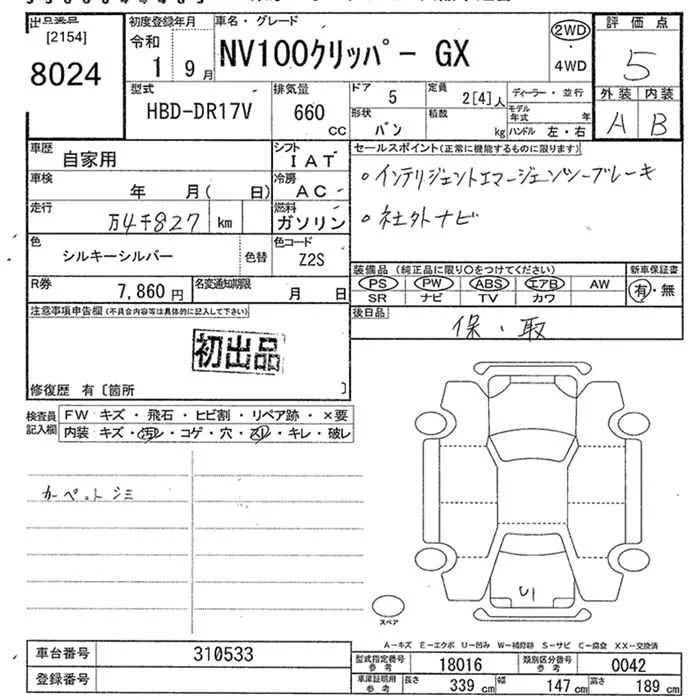 出品票点
[2154]
8024
初度登録年月
令和
1 9月
車名・グレード
NV100クリッパー GX
2WD
・
4WD
評価点
5
外装 内装
A B
型式
HBD-DR17V
排気量
660
CC
ドア
5
定員
2[4]人
ディーラー・並行
形状
バン
積載
kg
モデル年式 年
ハンドル 左・右
車歴
自家用
シフト
IAT
車検
年 月( 日)
冷房
AC
走行
万4千827 km
燃料
ガソリン
色
シルキーシルバー
色替
色コード
Z2S
R券
7,860円
名変通知期限
月 日
セールスポイント(正常に機能するものに限ります)
○インテリジェントエマージェンシーブレーキ
○社外ナビ
装備品 (純正品に限り○をつけてください)
PS PW ABS エアB AW
SR ナビ TV カワ
新車保証書
有・無
後日品
保・取
注意事項申告欄(不具合内容等は具体的に記入して下さい)
初出品
修復歴 有〔箇所 〕
検査員
記入欄
FW キズ・飛石・ヒビ割・リペア跡・×要
内装 キズ・汚レ・コゲ・穴・スレ・キレ・破レ
カーペットシミ
U1
スペア
A−キズ E−エクボ U−凹み W−補修跡 S−サビ C−腐食 XX−交換済
車台番号 310533
登録番号
型式指定番号
参考
18016
類別区分番号
参考
0042
車庫証明用
参考
長さ 339cm 幅 147cm 高さ 189cm